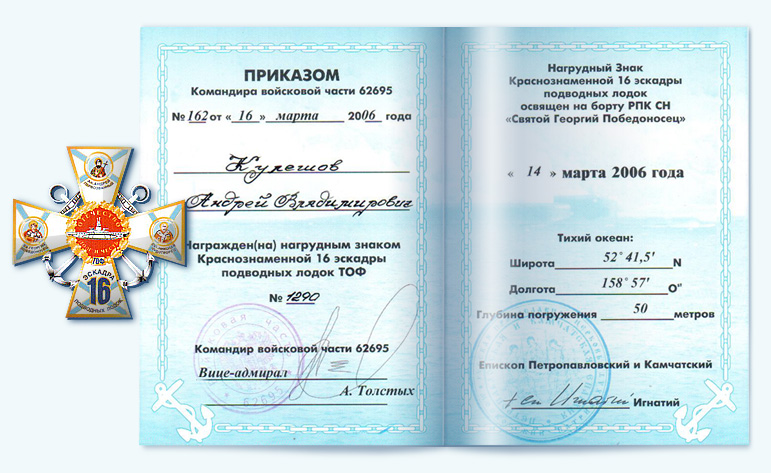 ПРИКАЗОМ
Командира войсковой части 62695
№ 162 от « 16 » марта 2006 года
Кулешов
Андрей Владимирович
Награжден(на) нагрудным знаком
Краснознаменной 16 эскадры
подводных лодок ТОФ
№ 1290
Командир войсковой части 62695
Вице-адмирал
А. Толстых
62695
Нагрудный Знак
Краснознаменной 16 эскадры
подводных лодок
освящен на борту РПК СН
«Святой Георгий Победоносец»
« 14 » марта 2006 года
Тихий океан:
Широта 52° 41,5' N
Долгота 158° 57' Оst
Глубина погружения 50 метров
Епископ Петропавловский и Камчатский
+ еп Игнатий Игнатий
ОТЕЧЕСТВО
ТОФ
ЭСКАДРА
16
ПОДВОДНЫХ ЛОДОК